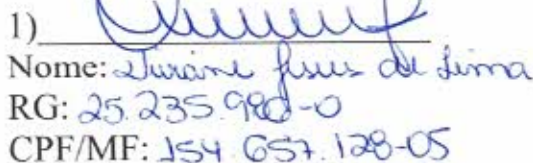 1)
Nome: Jurani Jesus de Lima
RG: 25.235.980-0
CPF/MF: 154.657.128-05